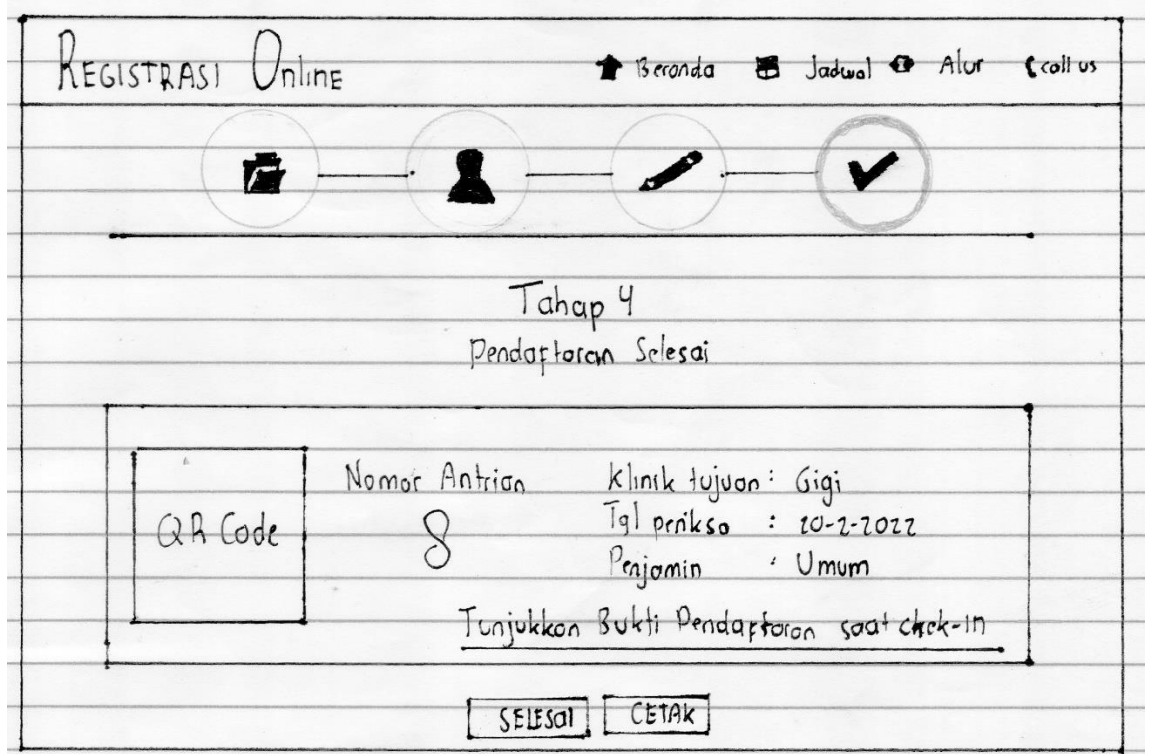 REGISTRASI Online Beranda Jadwal Alur call us
Tahap 4
Pendaftaran Selesai
QR Code
Nomor Antrian
8
Klinik tujuan : Gigi
Tgl periksa : 20-2-2022
Penjamin : Umum
Tunjukkan Bukti Pendaftaran saat chek-in
SELESAI CETAK